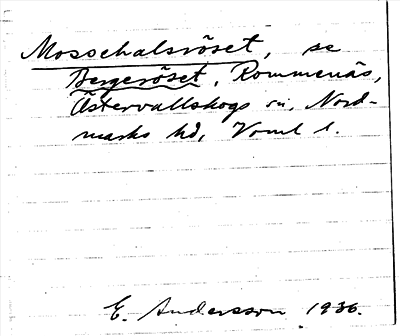 Mossehalsröset, se
Bergeröset, Rommenäs,
Östervallskogs sn, Nord-
marks hd, Vrml l.
E. Andersson 1936.